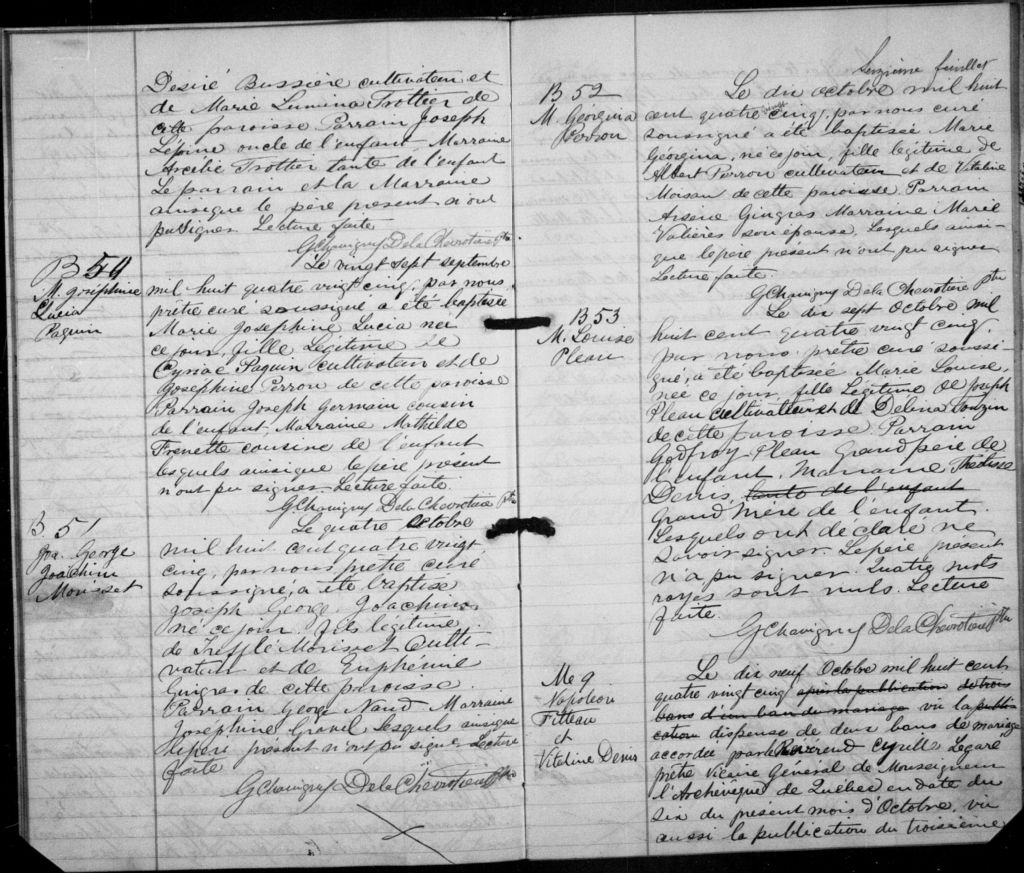 Desiré Bussière cultivateur et
de Marie Lumina Trottier de
cette paroisse Parrain Joseph
Lépine oncle de l'enfant Marraine
Arcélie Trottier tante de l'enfant
Le parrain et la Marraine
ainsi que le père présent n'ont
pu signer Lecture faite
GChavigny De la Chevrotière Ptre
B 50
M. Joséphine
Lucia
Paquin
Le vingt sept septembre
mil huit quatre vingt cinq, par nous
prêtre curé soussigné a été baptisée
Marie Josephine Lucia née
ce jour, fille Légitime de
Cyriac Paquin cultivateur et de
Joséphine Perron de cette paroisse
Parrain Joseph Germain cousin
de l'enfant, Marraine Mathilde
Frenette cousine de l'enfant
lesquels ainsique le père présent
n'ont pu signer. Lecture faite.
GChavigny De la Chevrotière Ptre
B 51
Jos. George
Joachim
Morisset
Le quatre Octobre
mil huit cent quatre vingt
cinq, par nous prêtre curé
soussigné, a été baptisé
Joseph George Joachim,
né ce jour, fils légitime
de Trefflé Morisset Culti-
vateur et de Euphémie
Gingras de cette paroisse.
Parrain George Naud Marraine
Joséphine Gravel lesquels ainsique
le père présent n'ont pu signer Lecture
faite
GChavigny De la Chevrotière Ptre
feuillet
B 52
M. Géorgina
Perron
Le dix octobre mil huit
cent quatre vingt cinq, par nous curé
soussigné a été baptisée Marie
Géorgina, née ce jour, fille légitime de
Albert Perron cultivateur et de Vitaline
Moisan de cette paroisse. Parrain
Arsène Gingras Marraine Marie
Valières son épouse. Lesquels ainsi-
que le père présent n'ont pu signer
Lecture faite.
GChavigny De la Chevrotière Ptre
B 53
M. Louise
Pleau
Le dix sept Octobre mil
huit cent quatre vingt cinq,
par nous prêtre curé soussi-
gné, a été baptisée Marie Louise,
née ce jour, fille Légitime de Joseph
Pleau cultivateur et de Delina
de cette paroisse. Parrain
Godfroy Pleau Grand père de
l'enfant, Marraine
Denis, tante de l'enfant
Grand Mère de l'enfant.
Lesquels ont déclaré ne
savoir signer. Le père présent
n'a pu signer. Quatre mots
rayés sont nuls. Lecture
faite.
GChavigny De la Chevrotière Ptre
M 9
Napoléon
Fitteau
et
Vitaline Denis
Le dix neuf Octobre mil huit cent
quatre vingt cinq après la publication de trois
bans d'un ban de mariage vu la publi-
cation dispense de deux bans de mariage
accordée par le Révérend Cyrille Legaré
prêtre Vicaire Général de Monseigneur
l'Archevêque de Québec en date du
six du présent mois d'Octobre, vu
aussi la publication du troisième